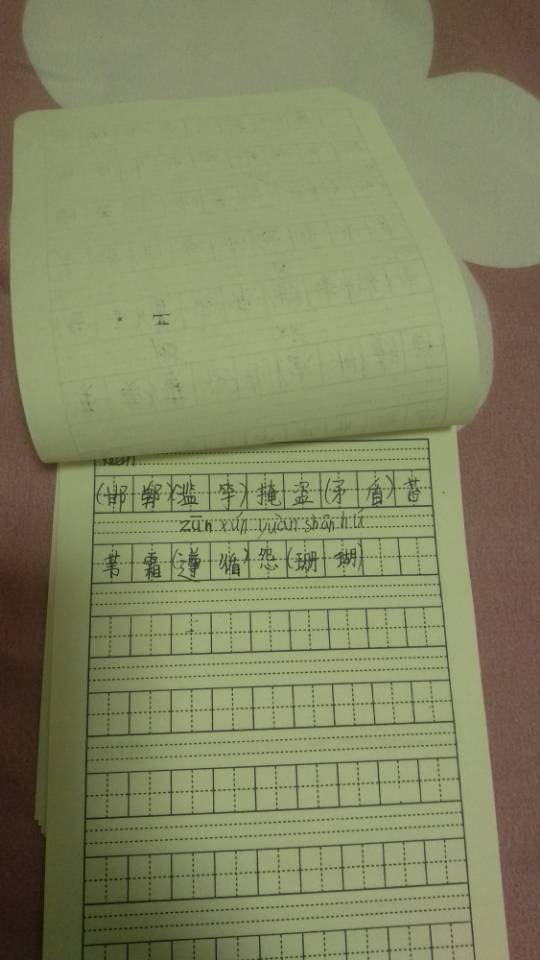 (邯郸)(滥竽)掩盗(矛盾)蓄
zūn xún yuàn shān hú
芾霜(遵循)怨(珊瑚)